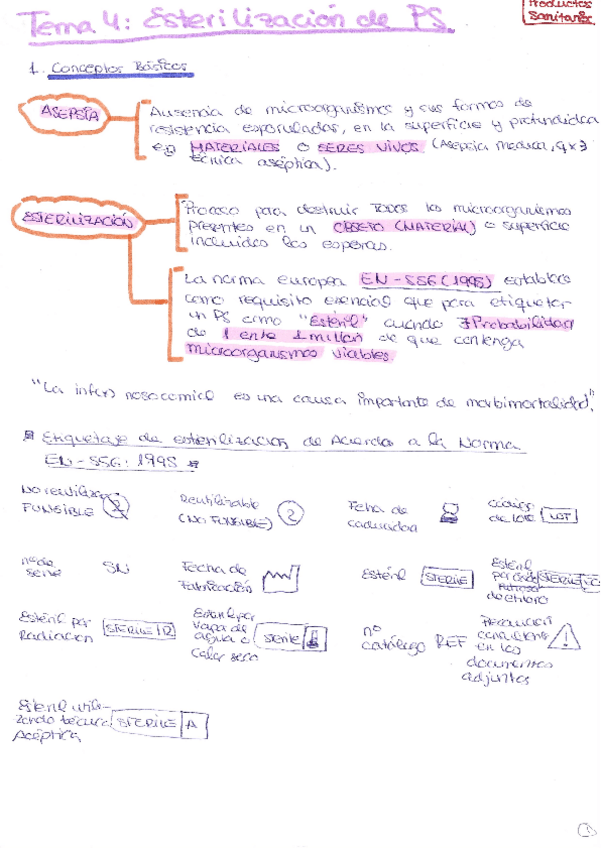 Productos
Sanitarios
Tema 4: Esterilización de PS
1. Conceptos Básicos
ASEPSIA
Ausencia de microorganismos y sus formas de
resistencia esporuladas, en la superficie y profundidad
en MATERIALES o SERES VIVOS (Asepsia médica, qx
técnica aséptica).
ESTERILIZACIÓN
Proceso para destruir TODOS los microorganismos
presentes en un OBJETO (MATERIAL) o superficie
incluidos las esporas.
La norma europea EN-556 (1995) establece
como requisito esencial que para etiquetar
un PS como "Estéril" cuando ∃ Probabilidad
de 1 ente 1 millón de que contenga
microorganismos viables.
"La infex) nosocomial es una causa importante de morbimortalidad".
Etiquetaje de esterilización de Acuerdo a la Norma
EN-556:1995
No reutilizar
FUNGIBLE 2
Reutilizable
(NO FUNGIBLE) 2
Fecha de
caducidad
código
de lote LOT
nº de
serie SN
Fecha de
Fabricación
Estéril STERILE
Estéril
por óxido STERILE
de etileno
Estéril por
Radiación STERILE R
Estéril por
vapor de
agua o sterile
calor seco
nº
catálogo REF
Precaución
consultense
en los
documentos
adjuntos
Estéril utili-
zando técnica STERILE A
Aséptica
1